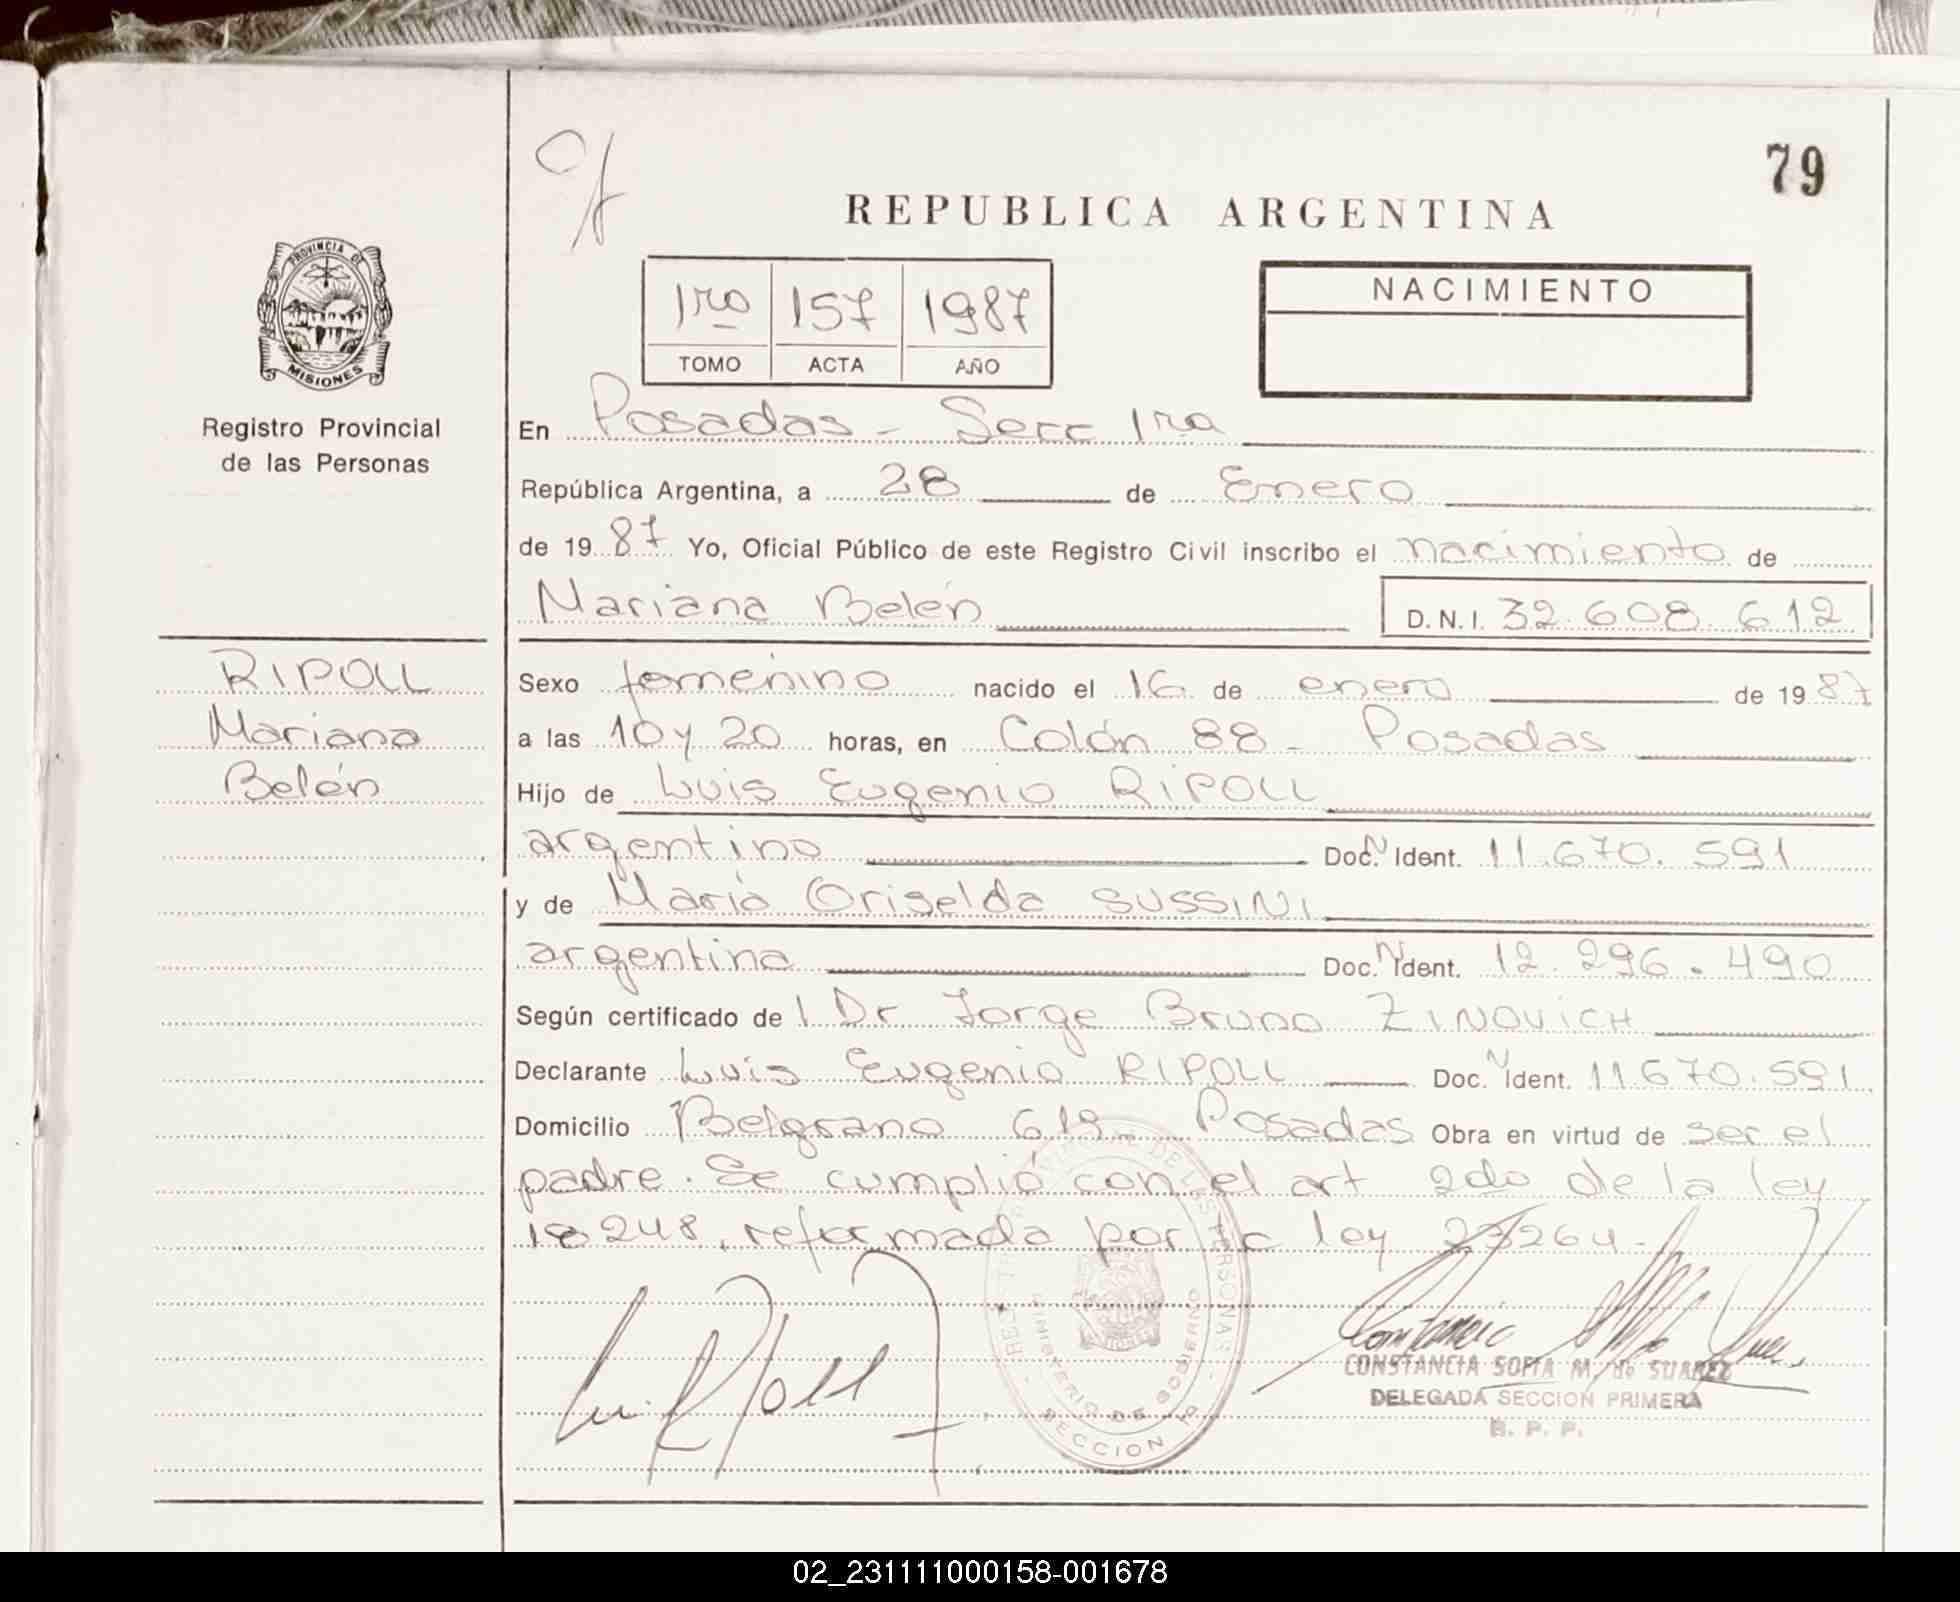 79
REPUBLICA ARGENTINA
PROVINCIA DE
MISIONES
Registro Provincial
de las Personas
1ro 157 1987
TOMO ACTA AÑO
NACIMIENTO
En Posadas - Secc 1ra
República Argentina, a 28 de Enero
de 1987 Yo, Oficial Público de este Registro Civil inscribo el nacimiento de
Mariana Belén D.N.I. 32.608.612
RIPOLL
Mariana
Belén
Sexo femenino nacido el 16 de enero de 1987
a las 10 y 20 horas, en Colón 88 - Posadas
Hijo de Luis Eugenio RIPOLL
argentino Doc. N Ident. 11.670.591
y de María Griselda SUSSINI
argentina Doc. N Ident. 12.296.490
Según certificado de l Dr Jorge Bruno ZINOVICH
Declarante Luis Eugenio RIPOLL Doc. N Ident. 11.670.591
Domicilio Belgrano 619 Posadas Obra en virtud de ser el
padre. Se cumplió con el art 2do de la ley
18248, reformada por la ley 23264.-
MINISTERIO DE GOBIERNO
SECCION 1a
CONSTANCIA SOFIA M. de SUAREZ
DELEGADA SECCION PRIMERA
R. P. P.
02_231111000158-001678